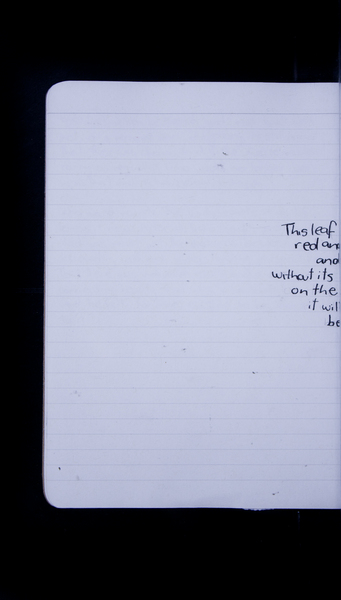 This leaf
red an
and
without its
on the
it wil
be